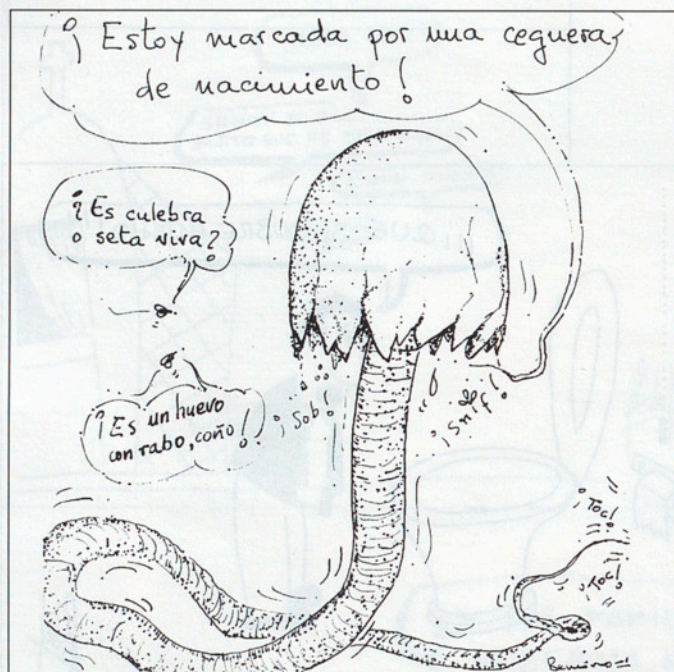 ¡Estoy marcada por una ceguera
de nacimiento!
¿Es culebra
o seta viva?
¡Es un huevo
con rabo, coño!
¡Sob!
¡Snif!
¡Toc!
¡Toc!